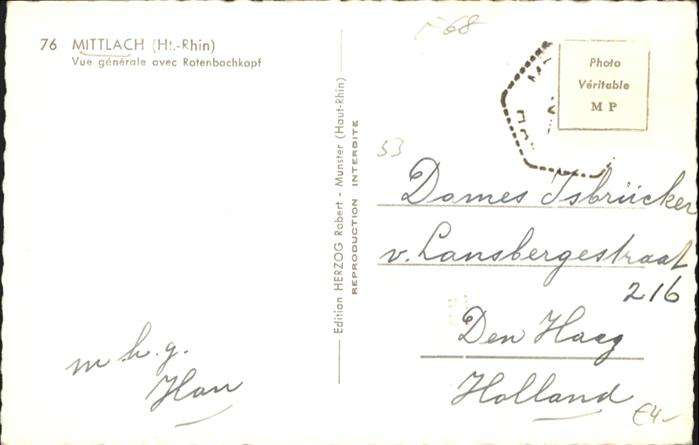 76 MITTLACH (Ht.-Rhin)
Vue générale avec Rotenbachkopf
m h. g.
Han
Edition HERZOG Robert - Munster (Haut-Rhin)
REPRODUCTION INTERDITE
F 68
Photo
Véritable
M P
53
Dames Isbrücker
v. Lansbergestraat
216
Den Haag
Holland
€4-